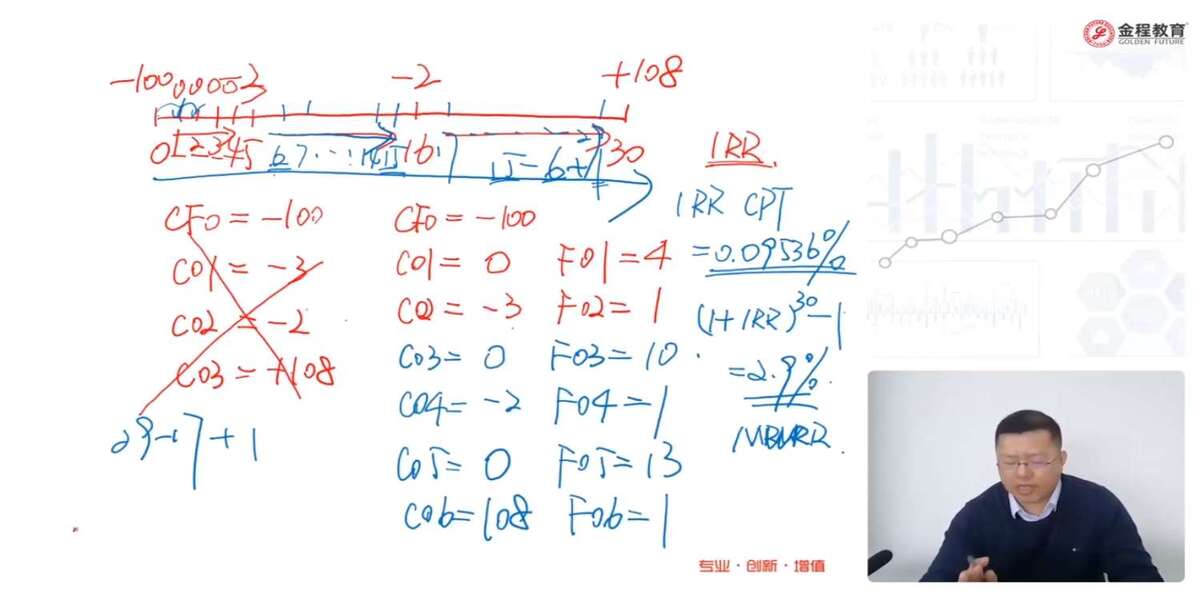 金程教育
GOLDEN FUTURE
-100 0 0 0 0 -3 -2 +108
0 1 2 3 4 5 6 7 ... 14 15 16 17 30
15-6+1
CF0 = -100
C01 = -3
C02 = -2
C03 = +108
29-17+1
CF0 = -100
C01 = 0 F01 = 4
C02 = -3 F02 = 1
C03 = 0 F03 = 10
C04 = -2 F04 = 1
C05 = 0 F05 = 13
C06 = 108 F06 = 1
IRR
IRR CPT
= 0.09536%
(1+IRR)^30 - 1
= 2.9%
专业·创新·增值